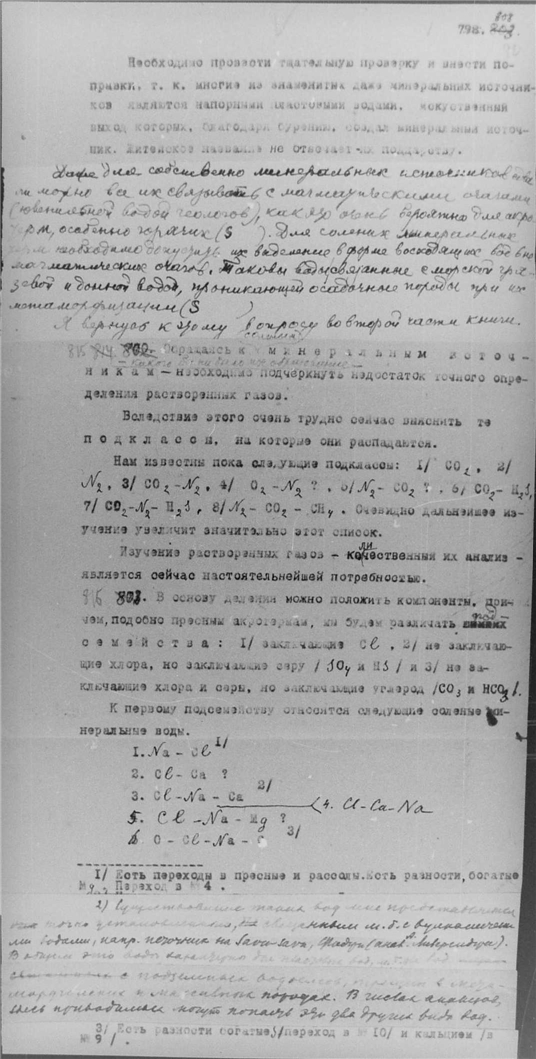 808
798.
Необходимо провести тщательную проверку и внести по-
правки, т. к. многие из знаменитых даже минеральных источни-
ков являются напорными пластовыми водами, искуственный
выход которых, благодаря бурению, создал минеральный источ-
ник. Житейское название не отвечает их подцарству.
Даже для собственно минеральных источников
можно все их связывать с магматическими очагами
(ювенильной водой геологов), как это очень вероятно для акро-
терм, особенно горячих (§ ). Для соленых минеральных
терм необходимо допустить их выделение в форме восходящих вод вне
магматических очагов. Таковы воды связанные с морской гря-
зевой и донной водой, проникающей осадочные породы при их
метаморфизации (§ )
Я вернусь к этому вопросу во второй части книги.
815 814 802. Обращаясь к минеральным источ-
никам - необходимо подчеркнуть недостаток точного опре-
деления растворенных газов.
Вследствие этого очень трудно сейчас выяснить те
подклассы, на которые они распадаются.
Нам известны пока следующие подклассы: 1/ CO2, 2/
N2, 3/ CO2-N2, 4/ O2-N2 ?, 5/ N2-CO2 ?, 6/ CO2-H2S,
7/ CO2-N2-H2S, 8/ N2-CO2-CH4. Очевидно дальнейшее из-
учение увеличит значительно этот список.
Изучение растворенных газов - количественный их анализ -
является сейчас настоятельнейшей потребностью.
816 803. В основу деления можно положить компоненты, при-
чем, подобно пресным акротермам, мы будем различать под-
семейства: 1/ заключающие Cl, 2/ не заключаю-
щие хлора, но заключающие серу /SO4 и HS/ и 3/ не за-
ключающие хлора и серы, но заключающие углерод /CO3 и HCO3/.
К первому подсемейству относятся следующие соленые ми-
неральные воды.
1. Na - Cl 1/
2. Cl - Ca ?
3. Cl - Na - Ca 2/
4. Cl-Ca-Na
5. Cl - Na - Mg ?
6. O - Cl - Na - C 3/
1/ Есть переходы в пресные и рассолы. Есть разности, богатые
Mg. Переход в № 4.
2) Существование таких вод мне представляется
точно установленным, м.б. с вулканическ
ми водами, напр. источник на
В общем это воды
с подземных водоносов,
массивных породах. В числах анализов,
здесь приводимых могут попасть эти два других вида вод.
3/ Есть разности богатые S/переход в № 10/ и кальцием /в
№ 9/.